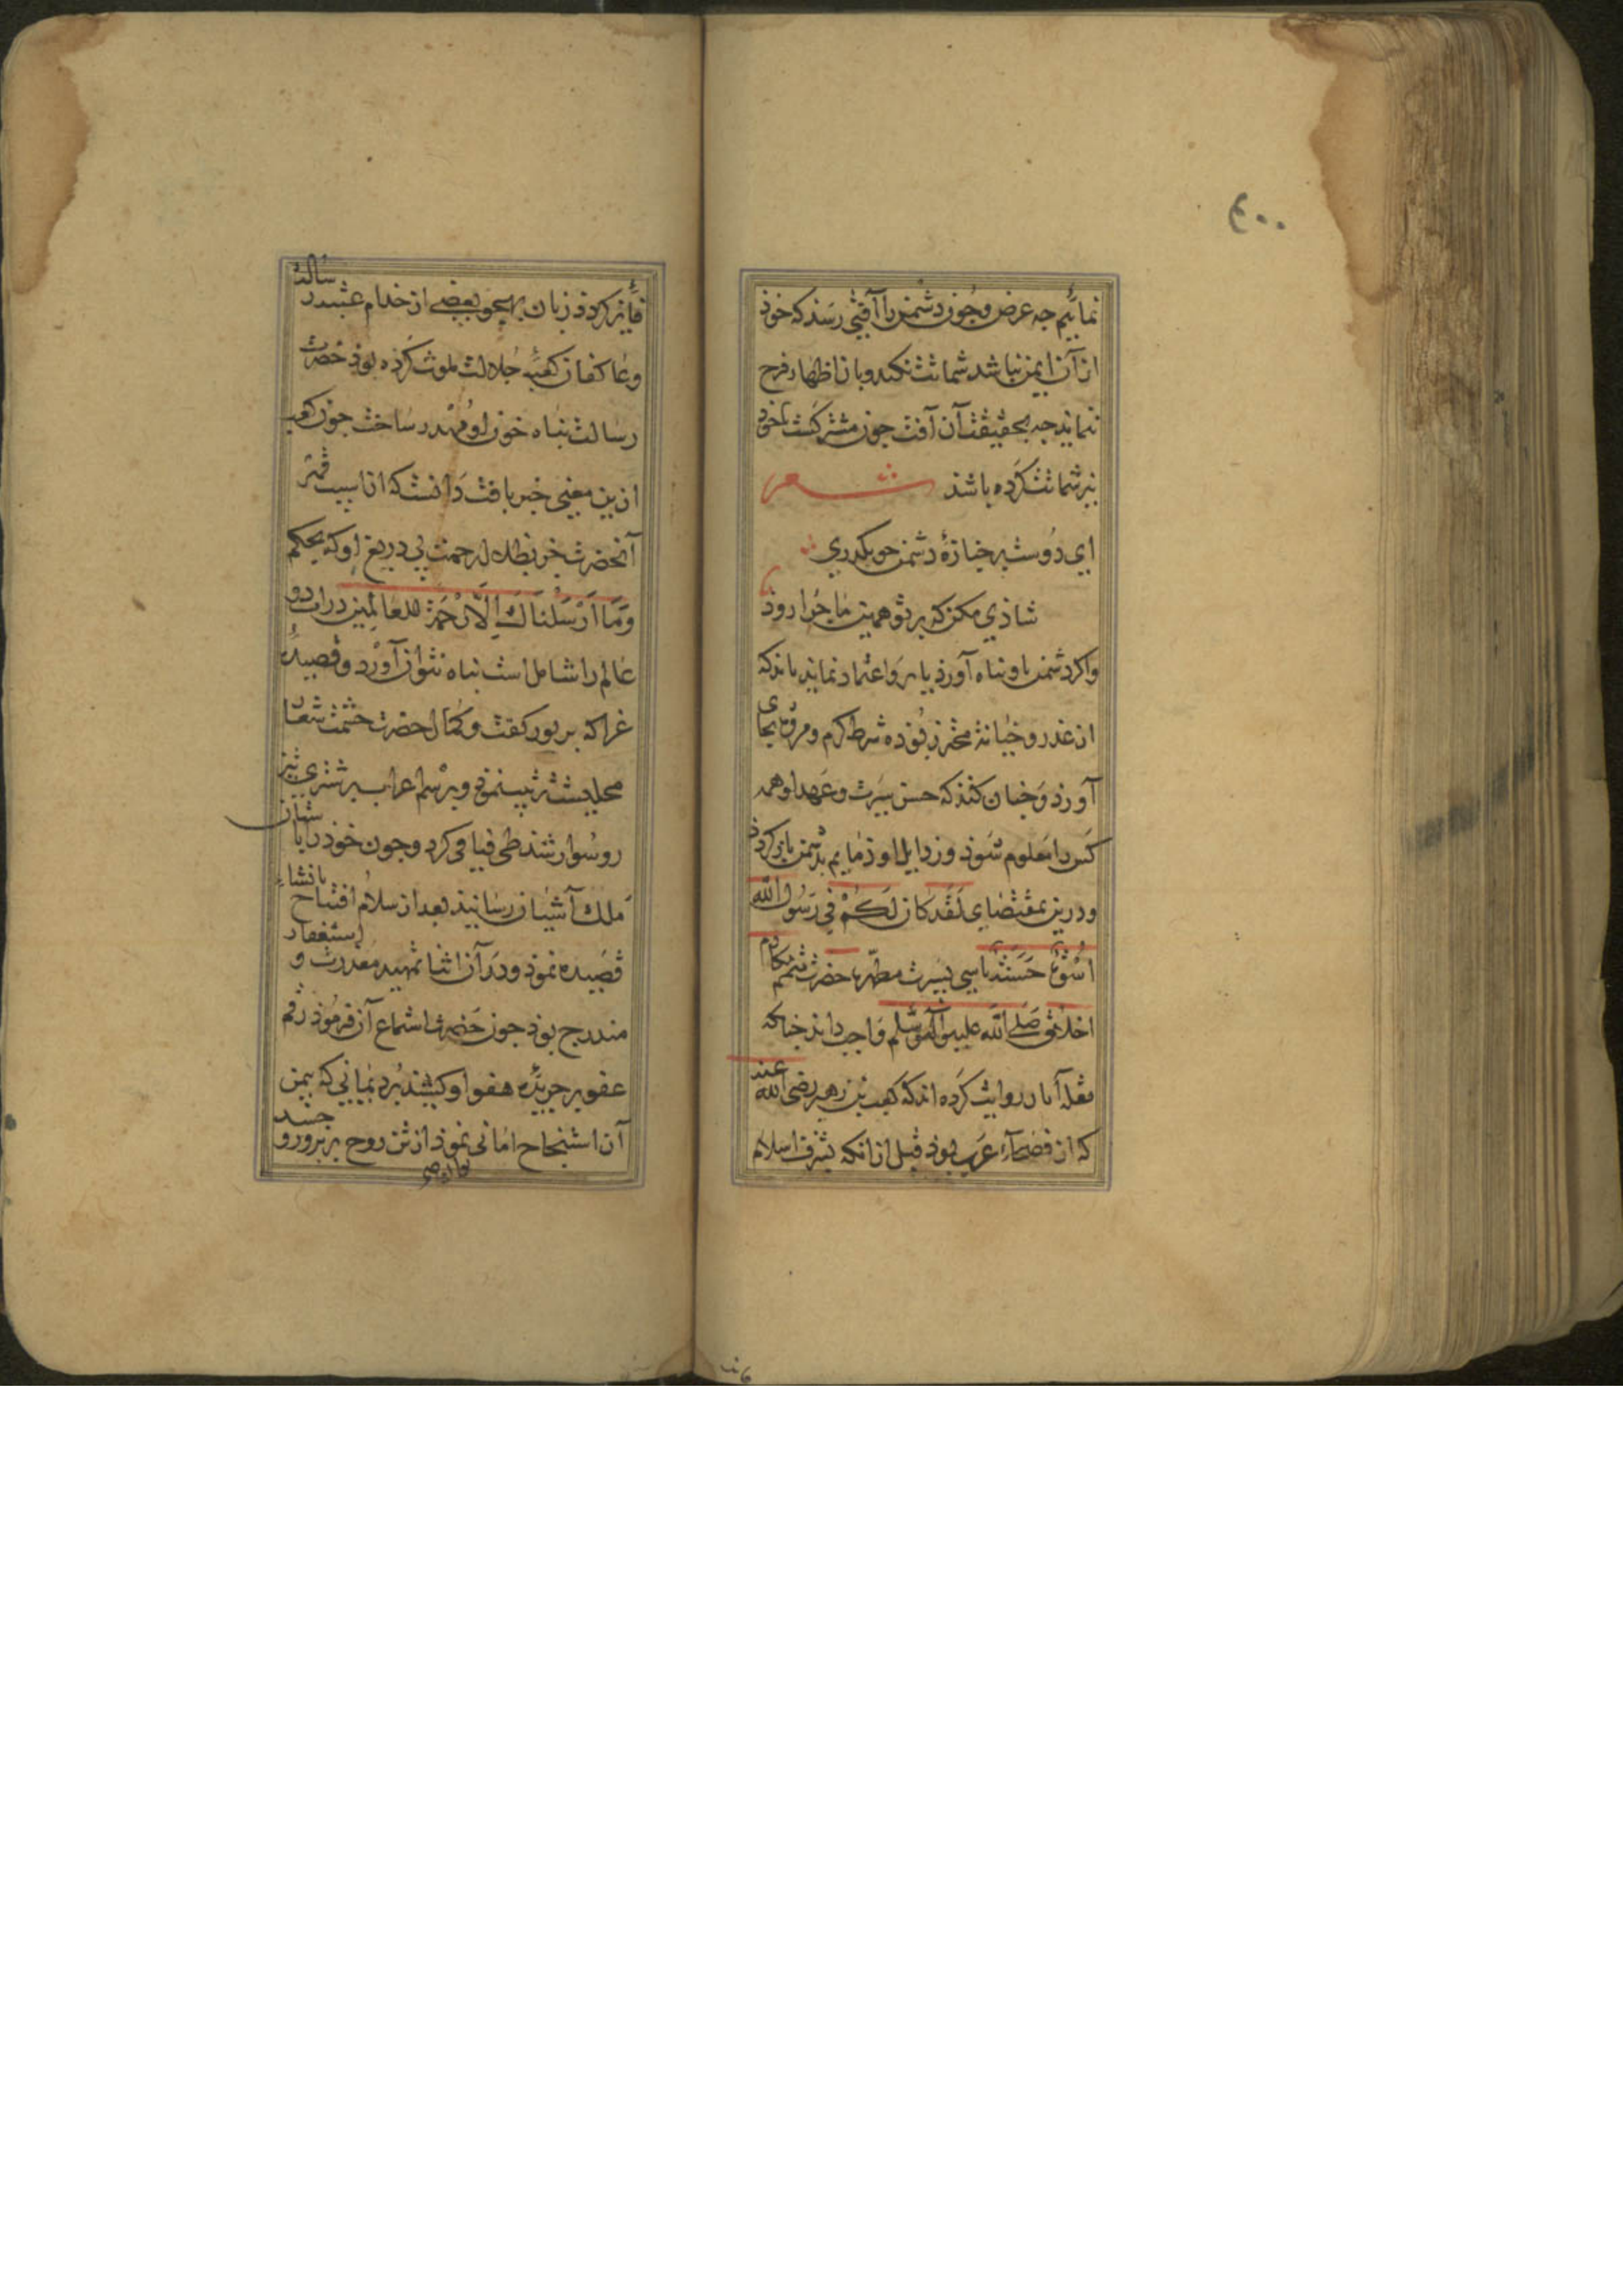 ۴۰۰
نمائیم چه عرض و چون دشمن را آفتی رسد که خوذ
از آن ایمن نباشد شماتت نکند و بآن اظهار فرح
ننماید چه بحقیقت آن آفت چون مشترکست باخود
نیز شماتت کرده باشذ شعر
ای دوست بر جنازهٔ دشمن چو بگذری
شاذی مکن که بر تو همین ماجرا روذ
واکر دشمن باو پناه آورذ یا برو اعتماد نماید باید که
از غدر و خیانة محترز بوذه شرط کرم و مروة بجای
آورذ و چنان کند که حسن سیرت و عهد او همه
کس را معلوم شوذ و رذایل او ذمایم بدشمن باز کردذ
ودرین بمقتضای لَقَد کَانَ لَکُمْ فِی رَسُول اللّٰه
اُسْوَة حَسَنَة تاسی بسیرت مطهرهٔ حضرت متمم مکارم
اخلاق صَلی الله علیه وآله وسلم واجب داند چنانکه
نقلهٔ آثار روایت کرده اند که کعب بن زهیر رضی الله عنه
که از فصحآء عرب بوذ قبل از انکه بشرف اسلام
فایز کردذ زبان بهجو بعضی از خدام عتبهٔ رسالت
وعاکفان کعبهٔ جلالت ملوث کرده بوذ حضرت
رسالت پناه خون او مهدر ساخت چون کعب
ازین معنی خبر یافت دانست که از آسیب قهر
آنحضرت جز بظل رحمت بی دریغ او که بحکم
وَمَا اَرْسَلْنَاكَ اِلَّا رَحْمَة للعَالَمِین ذرات دو
عالم را شامل است پناه نتوان آورد و قصیدهٔ
غرا که بزیور کفت و کمال حضرت حشمت شعار
محلیست ترتیب نموذ و برسم اعراب بر شتری تیز
رو سوار شد طی فیافی کرد و چون خوذ را بآستان
ملك آشیان رسانید بعد از سلام افتتاح بانشاء
قصیده نموذ ودر آن اثنا تمهید معذرت و استغفار
مندرج بوذ چون حضرت استماع آن فرموذ رقم
عفو بر جریدهٔ هفوات او کشید برد یمانی که بیمن
آن استنجاح امانی نموذ از تن روح پرور و جسد